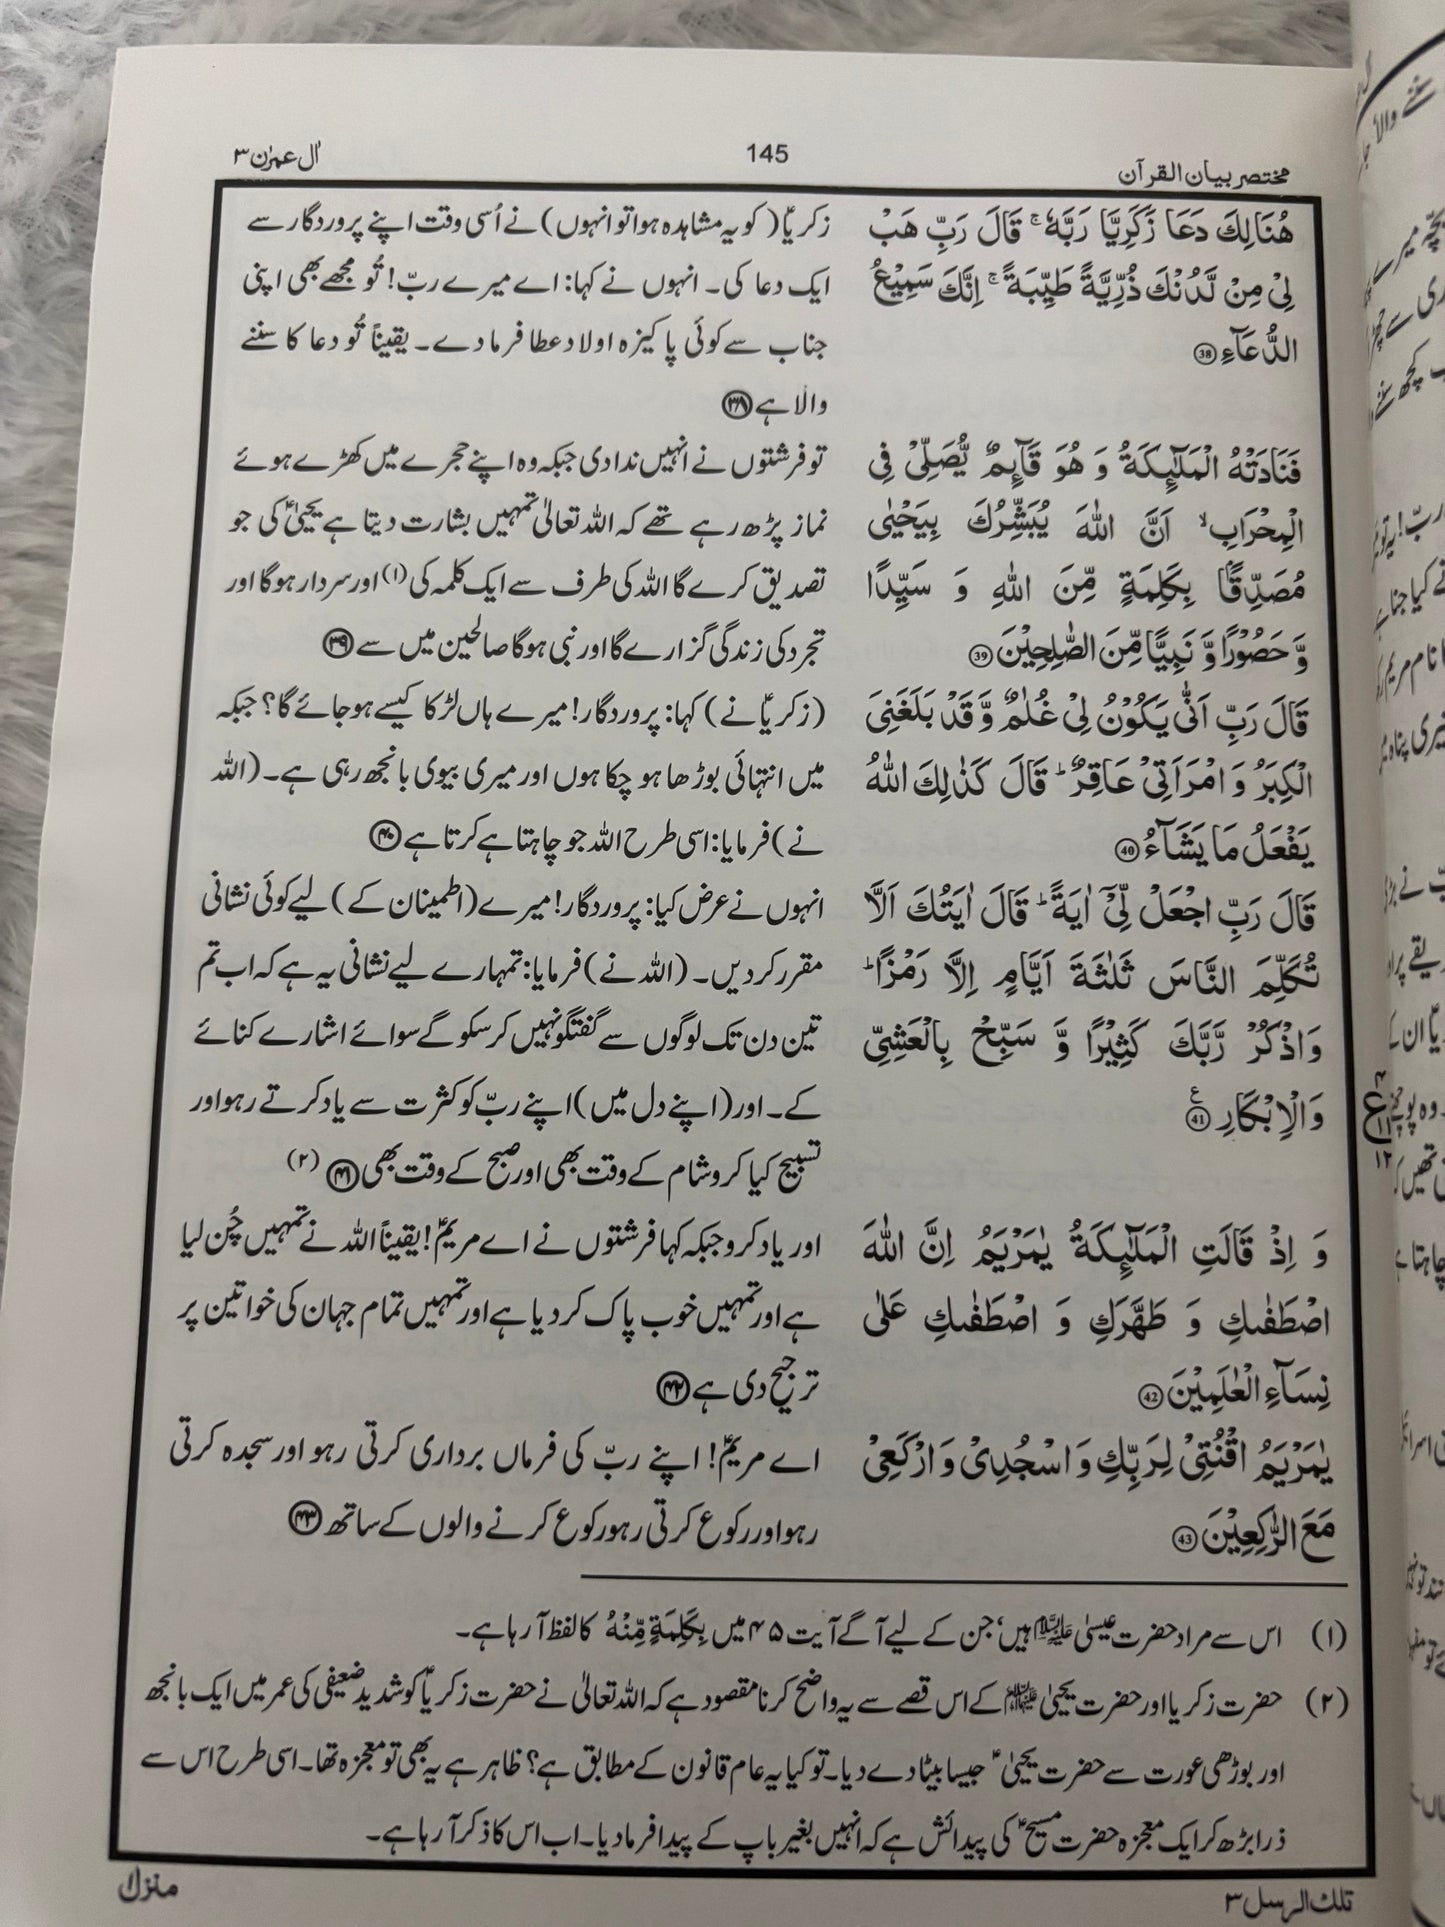 مختصر بیان القرآن
145
اٰل عمرٰن ۳
هُنَالِكَ دَعَا زَكَرِيَّا رَبَّهٗ ۚ قَالَ رَبِّ هَبْ
لِيْ مِنْ لَّدُنْكَ ذُرِّيَّةً طَيِّبَةً ۚ اِنَّكَ سَمِيْعُ
الدُّعَآءِ 38
زکریاؑ (کو یہ مشاہدہ ہوا تو انہوں) نے اُسی وقت اپنے پروردگار سے
ایک دعا کی۔ انہوں نے کہا: اے میرے ربّ! تُو مجھے بھی اپنی
جناب سے کوئی پاکیزہ اولاد عطا فرما دے۔ یقیناً تُو دعا کا سننے
والا ہے ۳۸
فَنَادَتْهُ الْمَلٰٓئِكَةُ وَ هُوَ قَآئِمٌ يُّصَلِّيْ فِي
الْمِحْرَابِ ۙ اَنَّ اللّٰهَ يُبَشِّرُكَ بِيَحْيٰى
مُصَدِّقًۢا بِكَلِمَةٍ مِّنَ اللّٰهِ وَ سَيِّدًا
وَّ حَصُوْرًا وَّ نَبِيًّا مِّنَ الصّٰلِحِيْنَ 39
تو فرشتوں نے انہیں ندا دی جبکہ وہ اپنے حجرے میں کھڑے ہوئے
نماز پڑھ رہے تھے کہ اللہ تعالیٰ تمہیں بشارت دیتا ہے یحییٰؑ کی جو
تصدیق کرے گا اللہ کی طرف سے ایک کلمہ کی (۱) اور سردار ہوگا اور
تجرد کی زندگی گزارے گا اور نبی ہوگا صالحین میں سے ۳۹
قَالَ رَبِّ اَنّٰى يَكُوْنُ لِيْ غُلٰمٌ وَّ قَدْ بَلَغَنِيَ
الْكِبَرُ وَ امْرَاَتِيْ عَاقِرٌ ؕ قَالَ كَذٰلِكَ اللّٰهُ
يَفْعَلُ مَا يَشَآءُ 40
(زکریاؑ نے) کہا: پروردگار! میرے ہاں لڑکا کیسے ہو جائے گا؟ جبکہ
میں انتہائی بوڑھا ہو چکا ہوں اور میری بیوی بانجھ رہی ہے۔ (اللہ
نے) فرمایا: اسی طرح اللہ جو چاہتا ہے کرتا ہے ۴۰
قَالَ رَبِّ اجْعَلْ لِّيْۤ اٰيَةً ؕ قَالَ اٰيَتُكَ اَلَّا
تُكَلِّمَ النَّاسَ ثَلٰثَةَ اَيَّامٍ اِلَّا رَمْزًا ؕ
وَاذْكُرْ رَّبَّكَ كَثِيْرًا وَّ سَبِّحْ بِالْعَشِيِّ
وَالْاِبْكَارِ 41 ع
انہوں نے عرض کیا: پروردگار! میرے (اطمینان کے) لیے کوئی نشانی
مقرر کر دیں۔ (اللہ نے) فرمایا: تمہارے لیے نشانی یہ ہے کہ اب تم
تین دن تک لوگوں سے گفتگو نہیں کر سکو گے سوائے اشارے کنائے
کے۔ اور (اپنے دل میں) اپنے ربّ کو کثرت سے یاد کرتے رہو اور
تسبیح کیا کرو شام کے وقت بھی اور صبح کے وقت بھی ۴۱ (۲)
۴
ع
۱۱
۱۲
وَ اِذْ قَالَتِ الْمَلٰٓئِكَةُ يٰمَرْيَمُ اِنَّ اللّٰهَ
اصْطَفٰىكِ وَ طَهَّرَكِ وَ اصْطَفٰىكِ عَلٰى
نِسَآءِ الْعٰلَمِيْنَ 42
اور یاد کرو جبکہ کہا فرشتوں نے اے مریمؑ! یقیناً اللہ نے تمہیں چُن لیا
ہے اور تمہیں خوب پاک کر دیا ہے اور تمہیں تمام جہان کی خواتین پر
ترجیح دی ہے ۴۲
يٰمَرْيَمُ اقْنُتِيْ لِرَبِّكِ وَاسْجُدِيْ وَارْكَعِيْ
مَعَ الرّٰكِعِيْنَ 43
اے مریمؑ! اپنے ربّ کی فرماں برداری کرتی رہو اور سجدہ کرتی
رہو اور رکوع کرتی رہو رکوع کرنے والوں کے ساتھ ۴۳
(۱) اس سے مراد حضرت عیسیٰ علیہ السلام ہیں، جن کے لیے آگے آیت ۴۵ میں بِكَلِمَةٍ مِّنْهُ کا لفظ آ رہا ہے۔
(۲) حضرت زکریا اور حضرت یحییٰ علیہما السلام کے اس قصے سے یہ واضح کرنا مقصود ہے کہ اللہ تعالیٰ نے حضرت زکریاؑ کو شدید ضعیفی کی عمر میں ایک بانجھ
اور بوڑھی عورت سے حضرت یحییٰؑ جیسا بیٹا دے دیا۔ تو کیا یہ عام قانون کے مطابق ہے؟ ظاہر ہے یہ بھی تو معجزہ تھا۔ اسی طرح اس سے
ذرا بڑھ کر ایک معجزہ حضرت مسیحؑ کی پیدائش ہے کہ انہیں بغیر باپ کے پیدا فرما دیا۔ اب اس کا ذکر آ رہا ہے۔
تلك الرسل ۳
منزل ۱